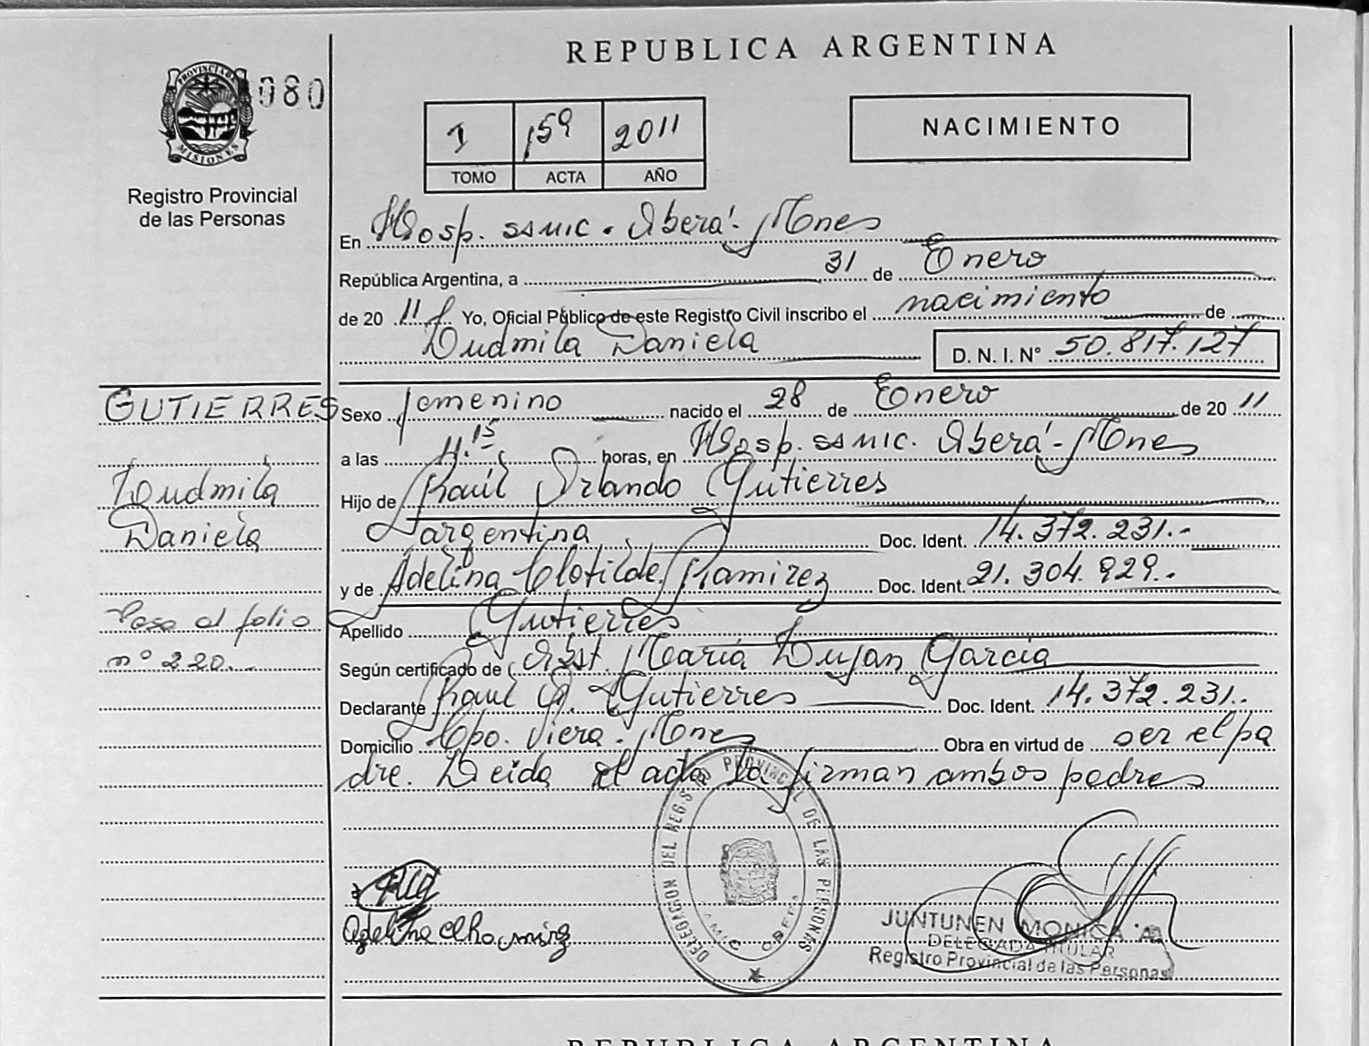 REPUBLICA ARGENTINA
PROVINCIA DE
MISIONES
080
Registro Provincial
de las Personas
I 159 2011
TOMO ACTA AÑO
NACIMIENTO
En Hosp. SAMIC. Oberá - Mnes
República Argentina, a 31 de Enero
de 2011 Yo, Oficial Público de este Registro Civil inscribo el nacimiento de
Ludmila Daniela D. N. I. Nº 50.817.127
GUTIERRES
Ludmila
Daniela
Pase al folio
nº 220.
Sexo femenino nacido el 28 de Enero de 2011
a las 11.15 horas, en Hosp. SAMIC. Oberá - Mnes
Hijo de Raúl Orlando Gutierres
argentina Doc. Ident. 14.372.231.-
y de Adelina Clotilde Ramirez Doc. Ident. 21.304.929.-
Apellido Gutierres
Según certificado de Obst. María Lujan Garcia
Declarante Raul O. Gutierres Doc. Ident. 14.372.231.-
Domicilio Cpo. Viera - Mnes Obra en virtud de ser el pa
dre. Leida el acta la firman ambos padres
Adelina
DELEGACION DEL REGISTRO PROVINCIAL DE LAS PERSONAS
SAMIC OBERA
JUNTUNEN MONICA A.
DELEGADA TITULAR
Registro Provincial de las Personas
REPUBLICA ARGENTINA